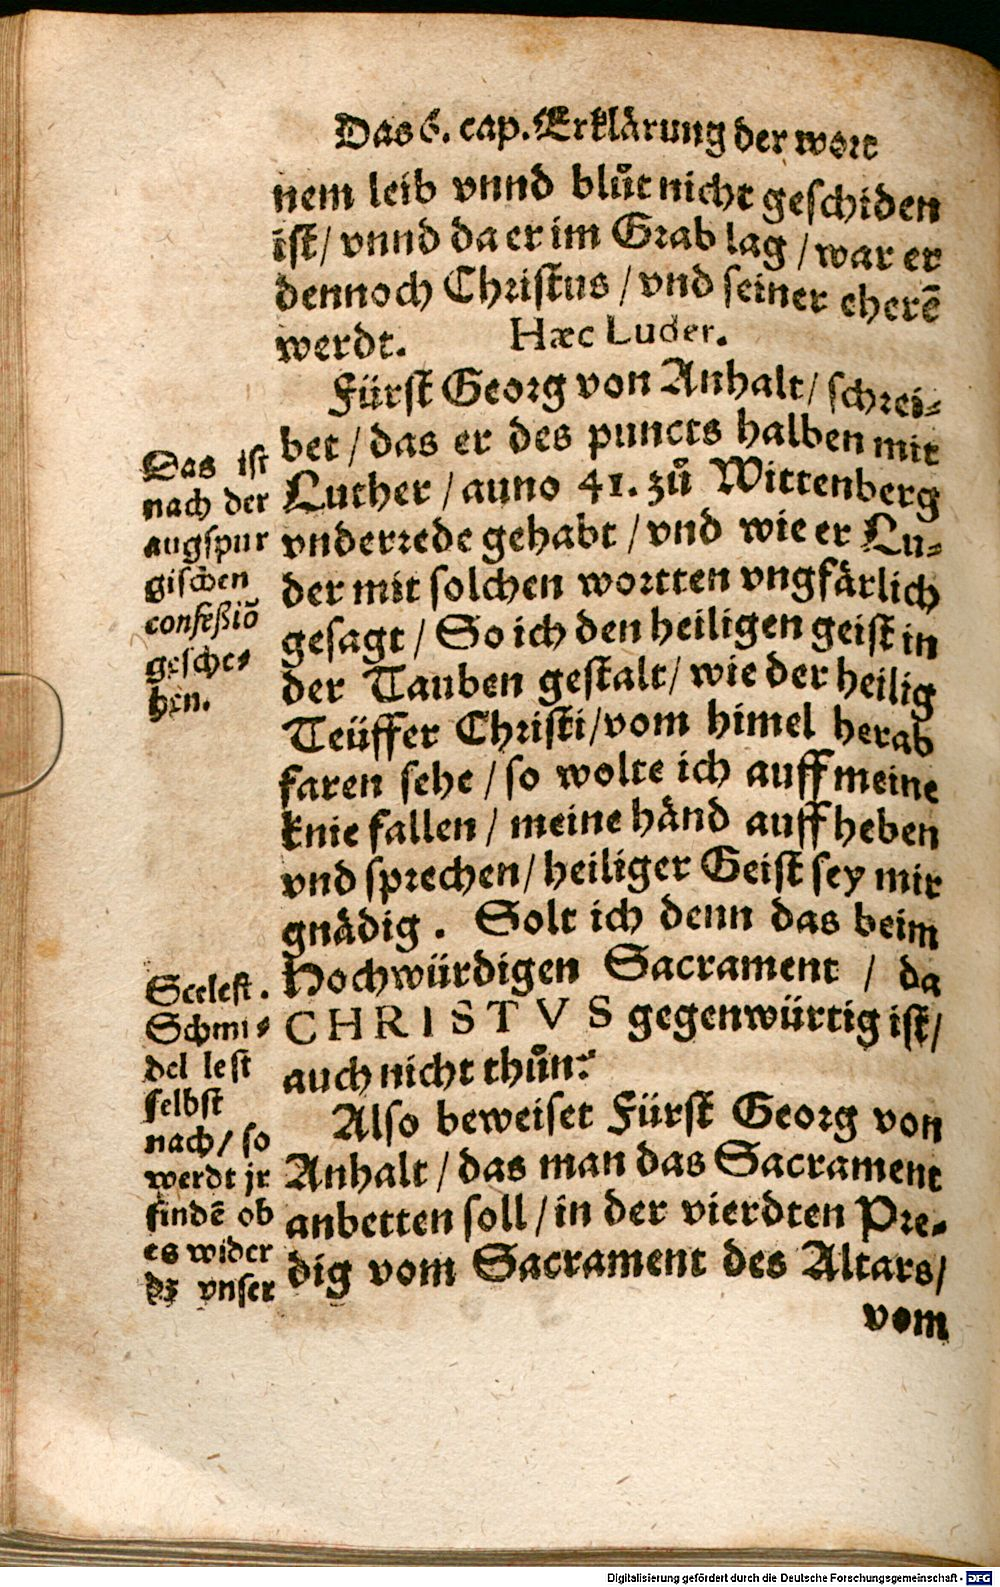 Das 6. cap. Erklärung der wort
nem leib vnnd bluͦt nicht geschiden
ist/ vnnd da er im Grab lag / war er
dennoch Christus / vnd seiner eherē
werdt. Hæc Luder.
Fürst Georg von Anhalt/ schrei-
bet / das er des puncts halben mit
Luther / anno 41. zuͦ Wittenberg
vnderrede gehabt / vnd wie er Lu-
der mit solchen wortten vngfärlich
gesagt / So ich den heiligen geist in
der Tauben gestalt/ wie der heilig
Teüffer Christi/vom himel herab
faren sehe / so wolte ich auff meine
knie fallen / meine händ auff heben
vnd sprechen/ heiliger Geist sey mir
gnädig . Solt ich denn das beim
Hochwürdigen Sacrament / da
CHRISTVS gegenwürtig ist/
auch nicht thuͦn?
Also beweiset Fürst Georg von
Anhalt / das man das Sacrament
anbetten soll / in der vierdten Pre-
dig vom Sacrament des Altars/
vom
Das ist
nach der
augspur
gischen
confeßiō
gesche-
hen.
Scelest .
Schmi-
del lest
selbst
nach/ so
werdt jr
findē ob
es wider
dz vnser
Digitalisierung gefördert durch die Deutsche Forschungsgemeinschaft - DFG